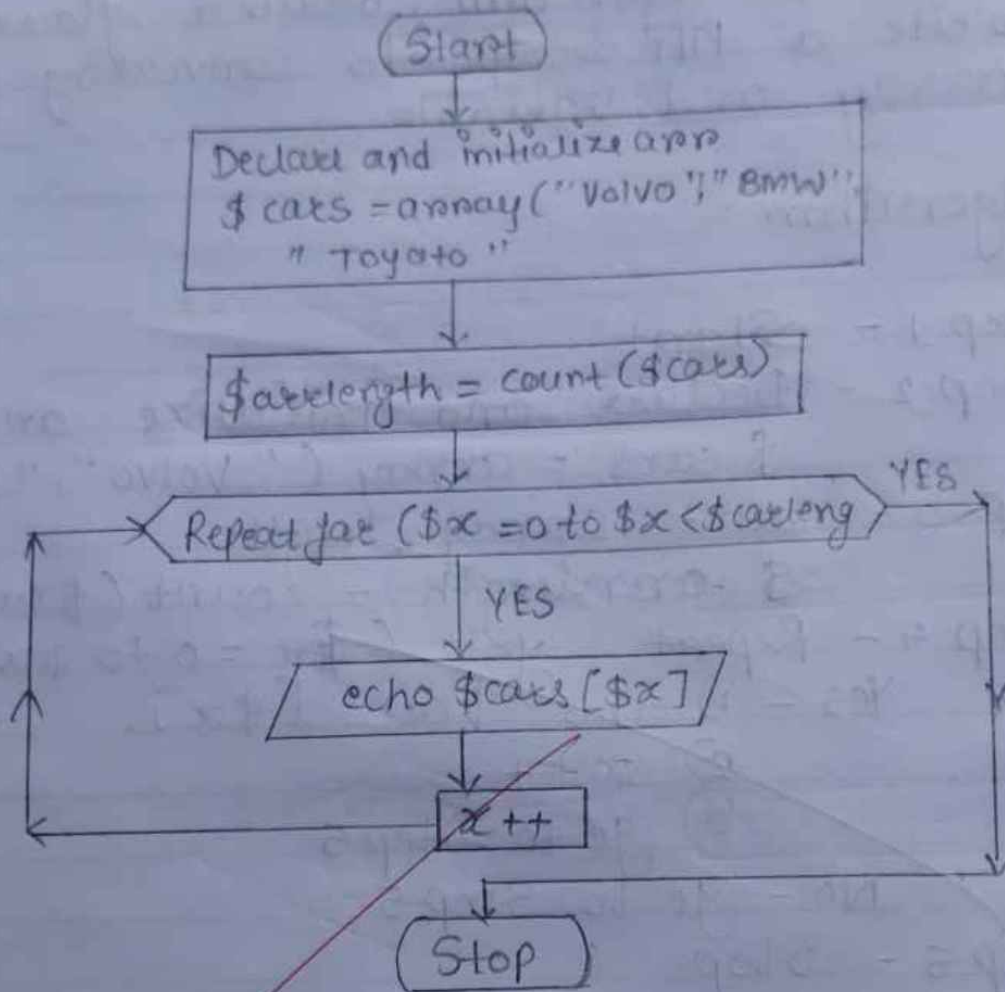 Start
Declare and initialize arr
$ cars = array ("Volvo", "BMW",
" Toyato "
$arrlength = count ($cars)
Repeat for ($x = 0 to $x < $carleng
YES
YES
echo $cars [$x]
x ++
Stop